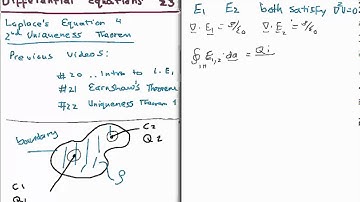 Differential equations 23
Laplace's Equation 4
2nd Uniqueness Theorem
Previous Videos:
#20 .. Intro to L.E.
#21 Earnshaw's Theorem
#22 Uniqueness Theorem 1
boundary
C2
Q2
C1
Q1
ρ
E1 E2 both satisfy ∇²V=0
∇·E1 = ρ/ε0 ∇·E2 = ρ/ε0
∮ E1,2 · da = Qi